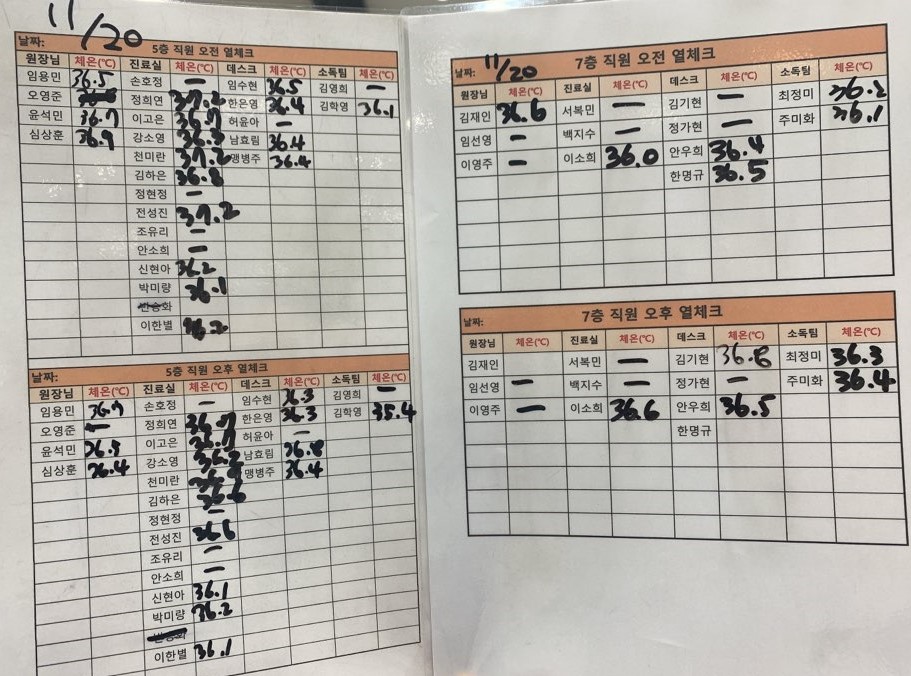 11/20
날짜: 5층 직원 오전 열체크
원장님 체온(℃) 진료실 체온(℃) 데스크 체온(℃) 소독팀 체온(℃)
임용민 36.5 손호정 — 임수현 36.5 김영희 —
오영준 정희연 37.2 한은영 36.4 김학영 36.1
윤석민 36.7 이고은 36.7 허윤아 —
심상훈 36.9 강소영 36.3 남효림 36.4
천미란 37.2 맹병주 36.4
김하은 36.8
정현정 —
전성진 37.2
조유리 —
안소희 —
신현아 36.2
박미량 36.1
이한별 36.2
날짜: 5층 직원 오후 열체크
원장님 체온(℃) 진료실 체온(℃) 데스크 체온(℃) 소독팀 체온(℃)
임용민 36.7 손호정 — 임수현 36.3 김영희 —
오영준 — 정희연 36.7 한은영 36.3 김학영 35.4
윤석민 이고은 36.7 허윤아 —
심상훈 36.4 강소영 남효림 36.8
천미란 맹병주 36.4
김하은 36.6
정현정 —
전성진 36.6
조유리 —
안소희 —
신현아 36.1
박미량 36.2
이한별 36.1
날짜: 11/20 7층 직원 오전 열체크
원장님 체온(℃) 진료실 체온(℃) 데스크 체온(℃) 소독팀 체온(℃)
김재인 36.6 서복민 — 김기현 — 최정미 36.2
임선영 — 백지수 — 정가현 — 주미화 36.1
이영주 — 이소희 36.0 안우희 36.4
한명규 36.5
날짜: 7층 직원 오후 열체크
원장님 체온(℃) 진료실 체온(℃) 데스크 체온(℃) 소독팀 체온(℃)
김재인 서복민 — 김기현 36.8 최정미 36.3
임선영 — 백지수 — 정가현 — 주미화 36.4
이영주 — 이소희 36.6 안우희 36.5
한명규